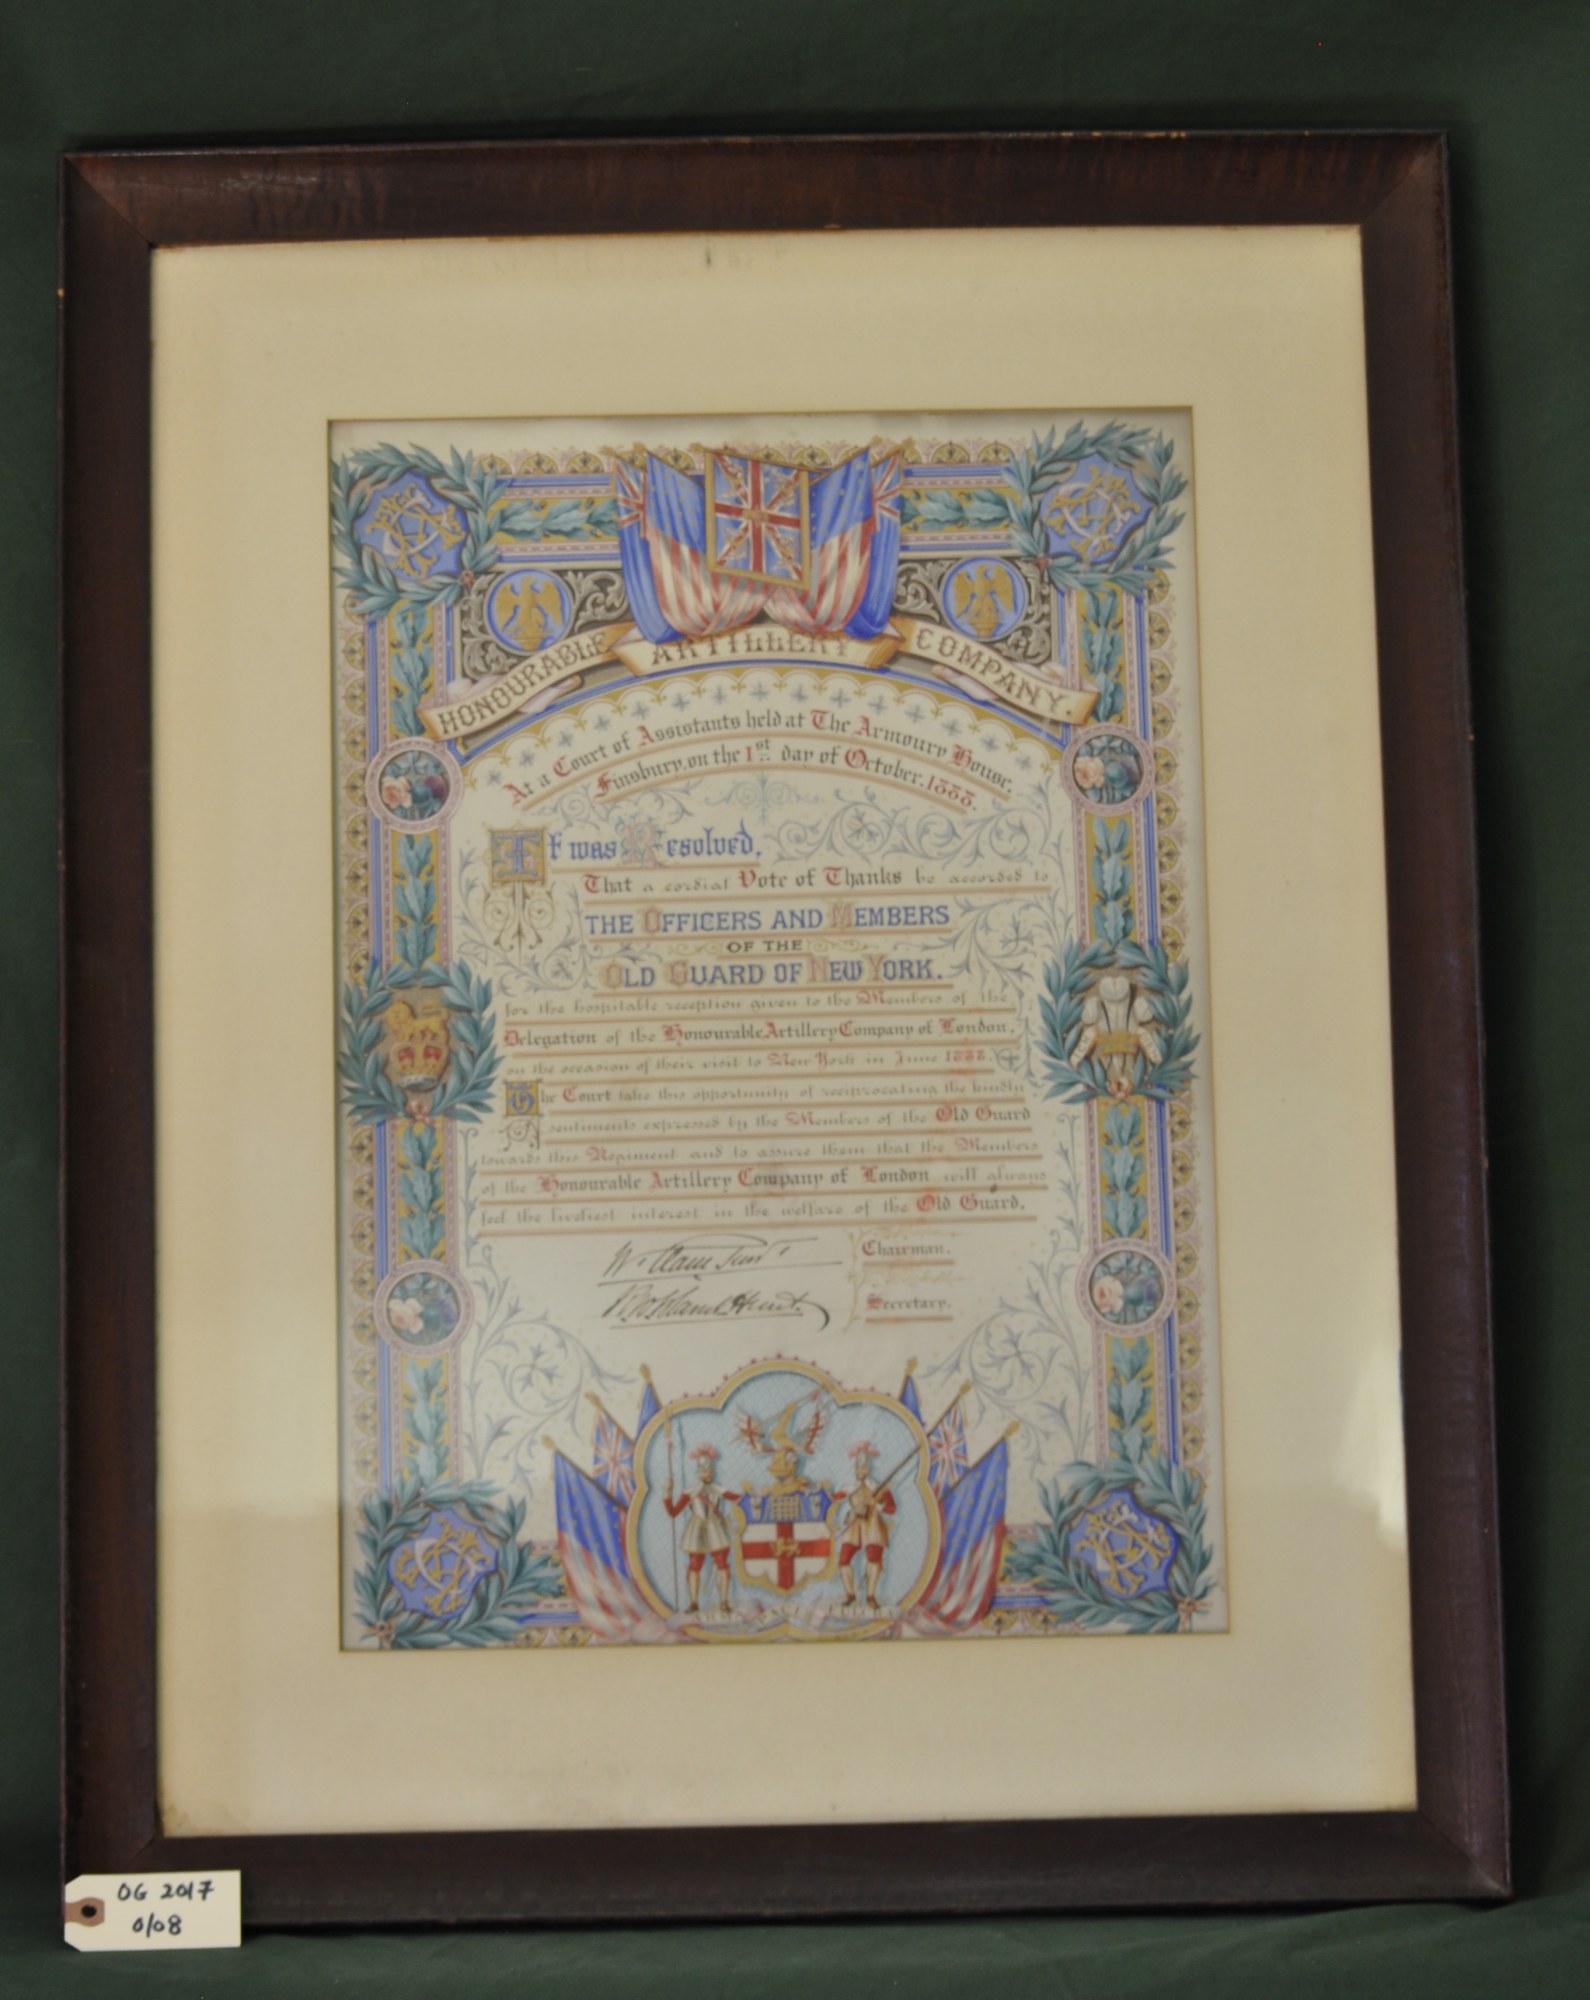 HONOURABLE ARTILLERY COMPANY.
At a Court of Assistants held at The Armoury House,
Finsbury, on the 1st day of October, 1888.
It was Resolved,
That a cordial Vote of Thanks be accorded to
THE OFFICERS AND MEMBERS
OF THE
OLD GUARD OF NEW YORK.
for the hospitable reception given to the Members of the
Delegation of the Honourable Artillery Company of London,
on the occasion of their visit to New York in June 1888.
The Court take this opportunity of reciprocating the kindly
sentiments expressed by the Members of the Old Guard
towards this Regiment and to assure them that the Members
of the Honourable Artillery Company of London will always
feel the liveliest interest in the welfare of the Old Guard.
Chairman.
Secretary.
OG 2017
0/08